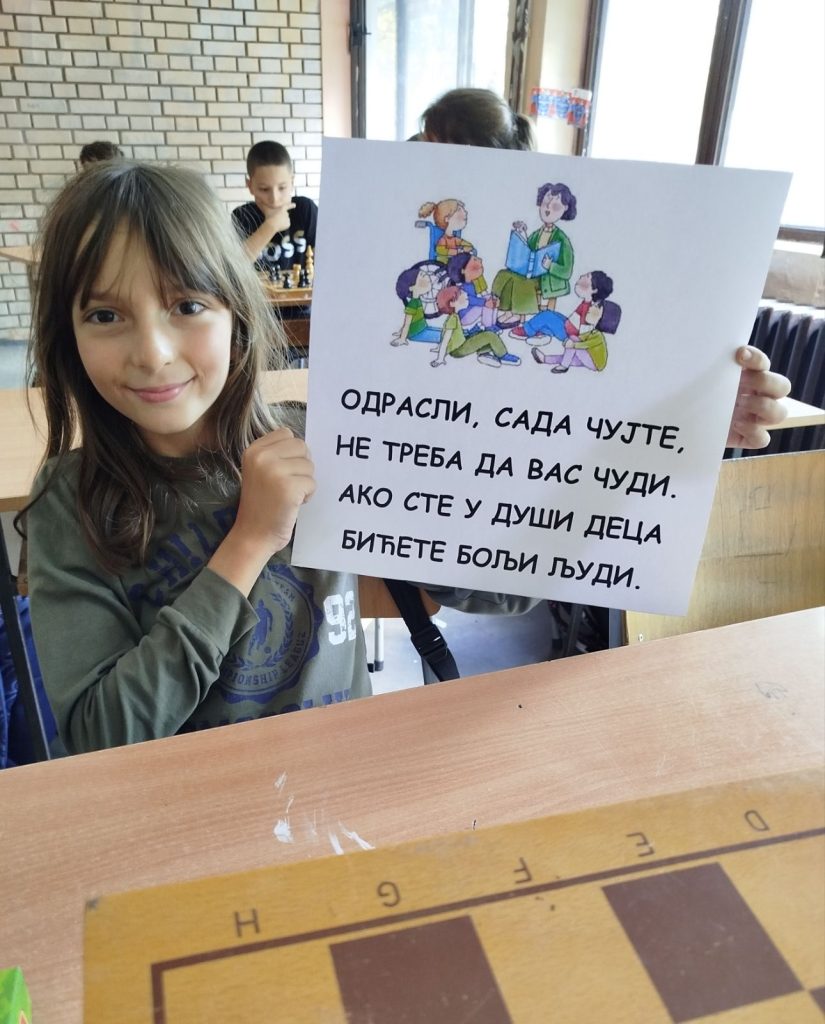 ОДРАСЛИ, САДА ЧУЈТЕ,
НЕ ТРЕБА ДА ВАС ЧУДИ.
АКО СТЕ У ДУШИ ДЕЦА
БИЋЕТЕ БОЉИ ЉУДИ.
92
H G F E D